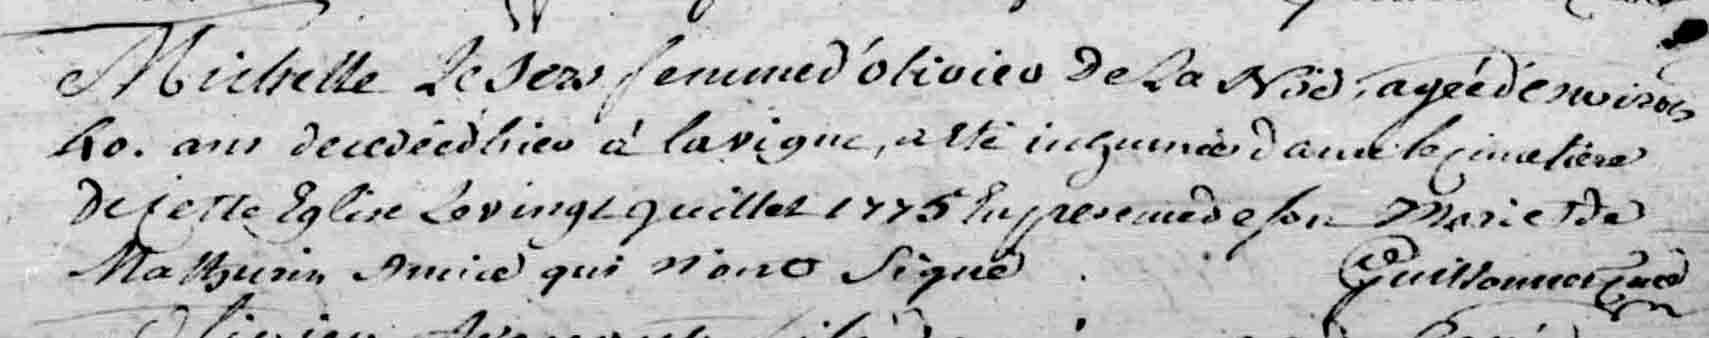 Michelle Le Sers femme d'olivier De La Nöe, agée d'environ
40. ans decedée d'hier à la vigne, a eté inhumée dans le cimetiere
De cette Eglise Le vingt juillet 1775 En presence de son Mari et de
Mathurin Amice qui n'ont Signé. Guillonner Curé